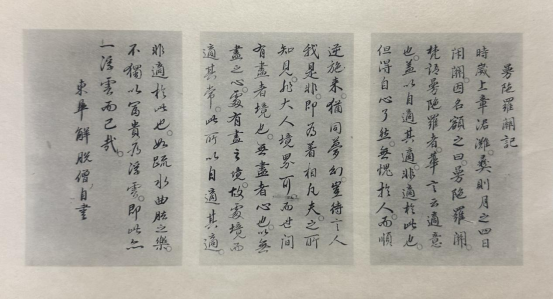 曼陁羅閣記
時歲上章涒灘彝則月之四日
閣因名額之曰曼陁羅閣
梵語曼陁羅者華言云適意
也蓋以自適其適非適於此也
但得自心了然無愧於人而順
逆施來猶同夢幻豈待言人
我是非即為着相凡夫之所
知見於大人境界何而世间
有盡者境也無盡者心也以無
盡之心處有盡之境故處境而
適其常此所以自適其適
非適於此也如疏水曲肱之樂
不獨以富貴為浮雲即此亦
一浮雲而已哉
東華解脫僧自書